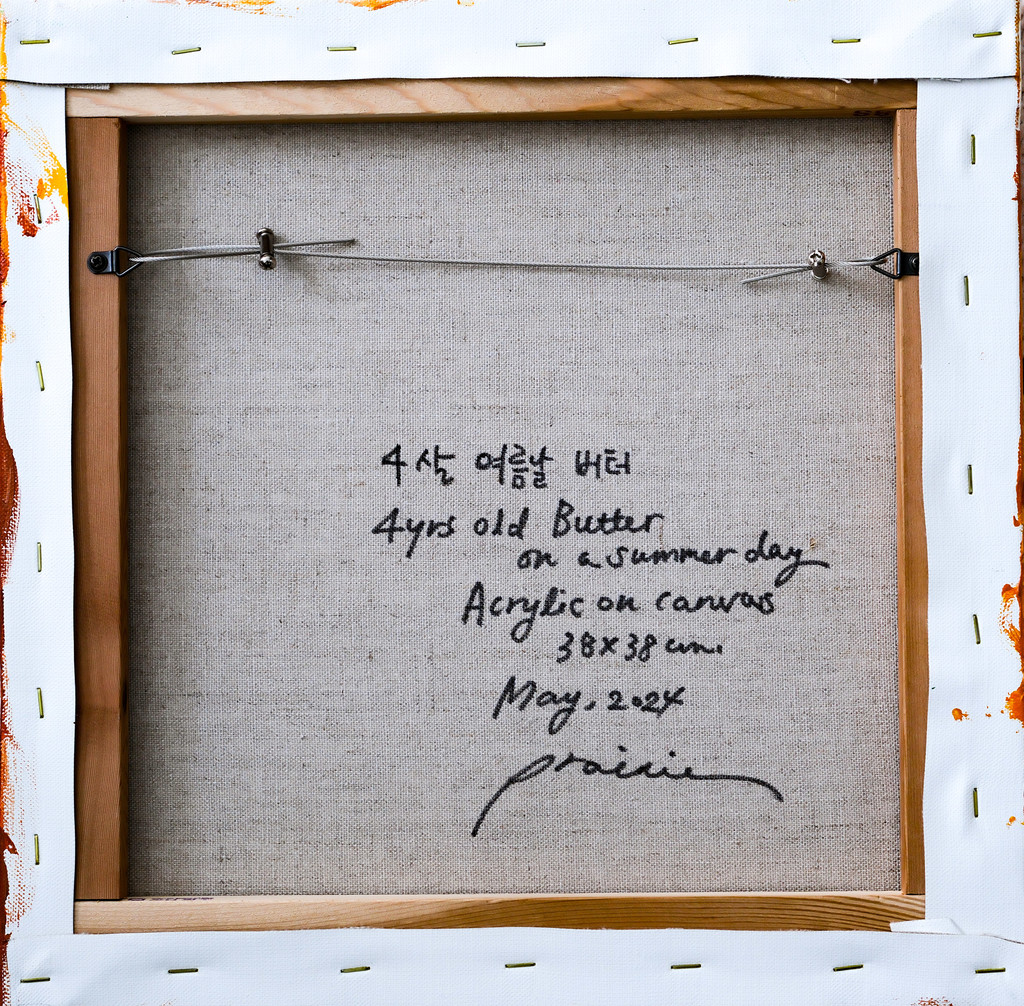 4살 여름날 버터
4yrs old Butter
on a summer day
Acrylic on canvas
38x38 cm.
May. 2024
prairie